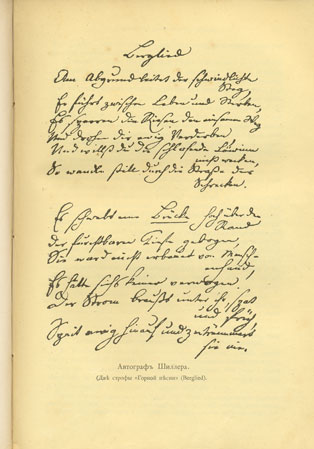 Berglied
Am Abgrund leitet der schwindlichte
Steg,
Er führt zwischen Leben und Sterben,
Es sperren die Riesen den einsamen Weg
Und drohen dir ewig Verderben
Und willst du die schlafende Löwinn
nicht wecken,
So wandle still durch die Straße der
Schrecken.
Es schwebt eine Brücke hoch über den
Rand
der furchtbaren Tiefe gebogen,
Sie ward nicht erbauet von Menschen-
hand,
Es hätte sichs keiner verwogen
Der Strom braußt unter ihr, spat
und früh
Speit ewig hinauf und zertrümmert
sie nie.
Автографъ Шиллера.
(Двѣ строфы «Горной пѣсни» (Berglied).